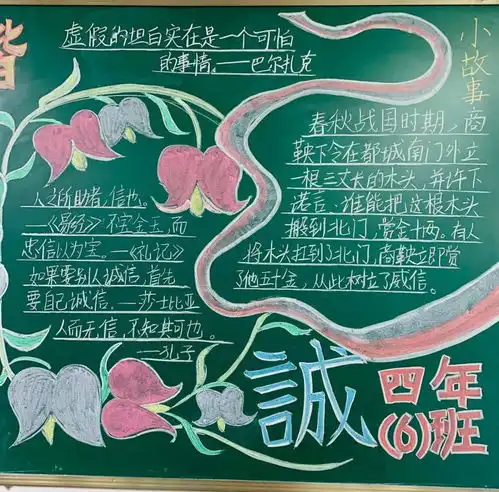 谐
虚假的坦白实在是一个可怕
的事情。——巴尔扎克
人之所助者,信也。
——《易经》不宝金玉,而
忠信以为宝。——《礼记》
如果要别人诚信,首先
要自己诚信。——莎士比亚
人而无信,不知其可也。
——孔子
小故事
春秋战国时期,商
鞅下令在都城南门外立
一根三丈长的木头,并许下
诺言:谁能把这根木头
搬到北门,赏金十两。有人
将木头扛到了北门,商鞅立即赏
了他五十金,从此树立了威信。
誠
四年
(6)班